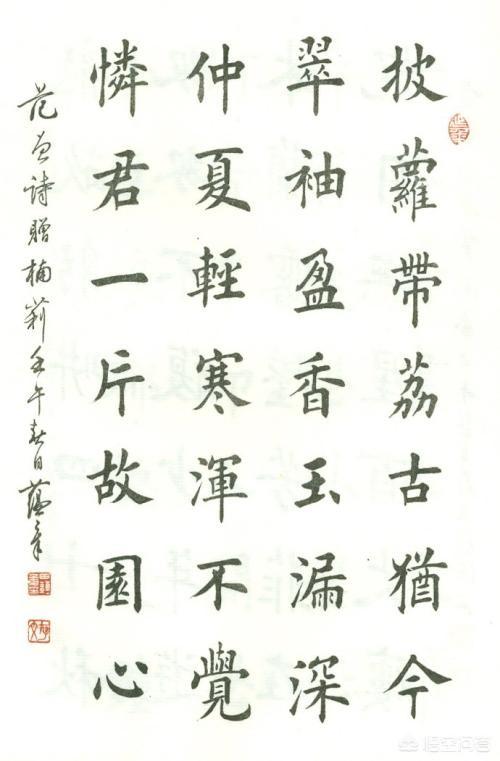 披蘿帶荔古猶今
翠袖盈香玉漏深
仲夏輕寒渾不覺
憐君一片故園心
范曾詩贈楠莉壬午春日蘊章
悟空问答